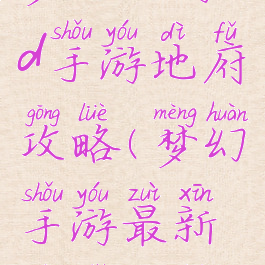 shǒu yóu dì fǔ
d手游地府
gōng lüè mèng huàn
攻略(梦幻
shǒu yóu zuì xīn
手游最新